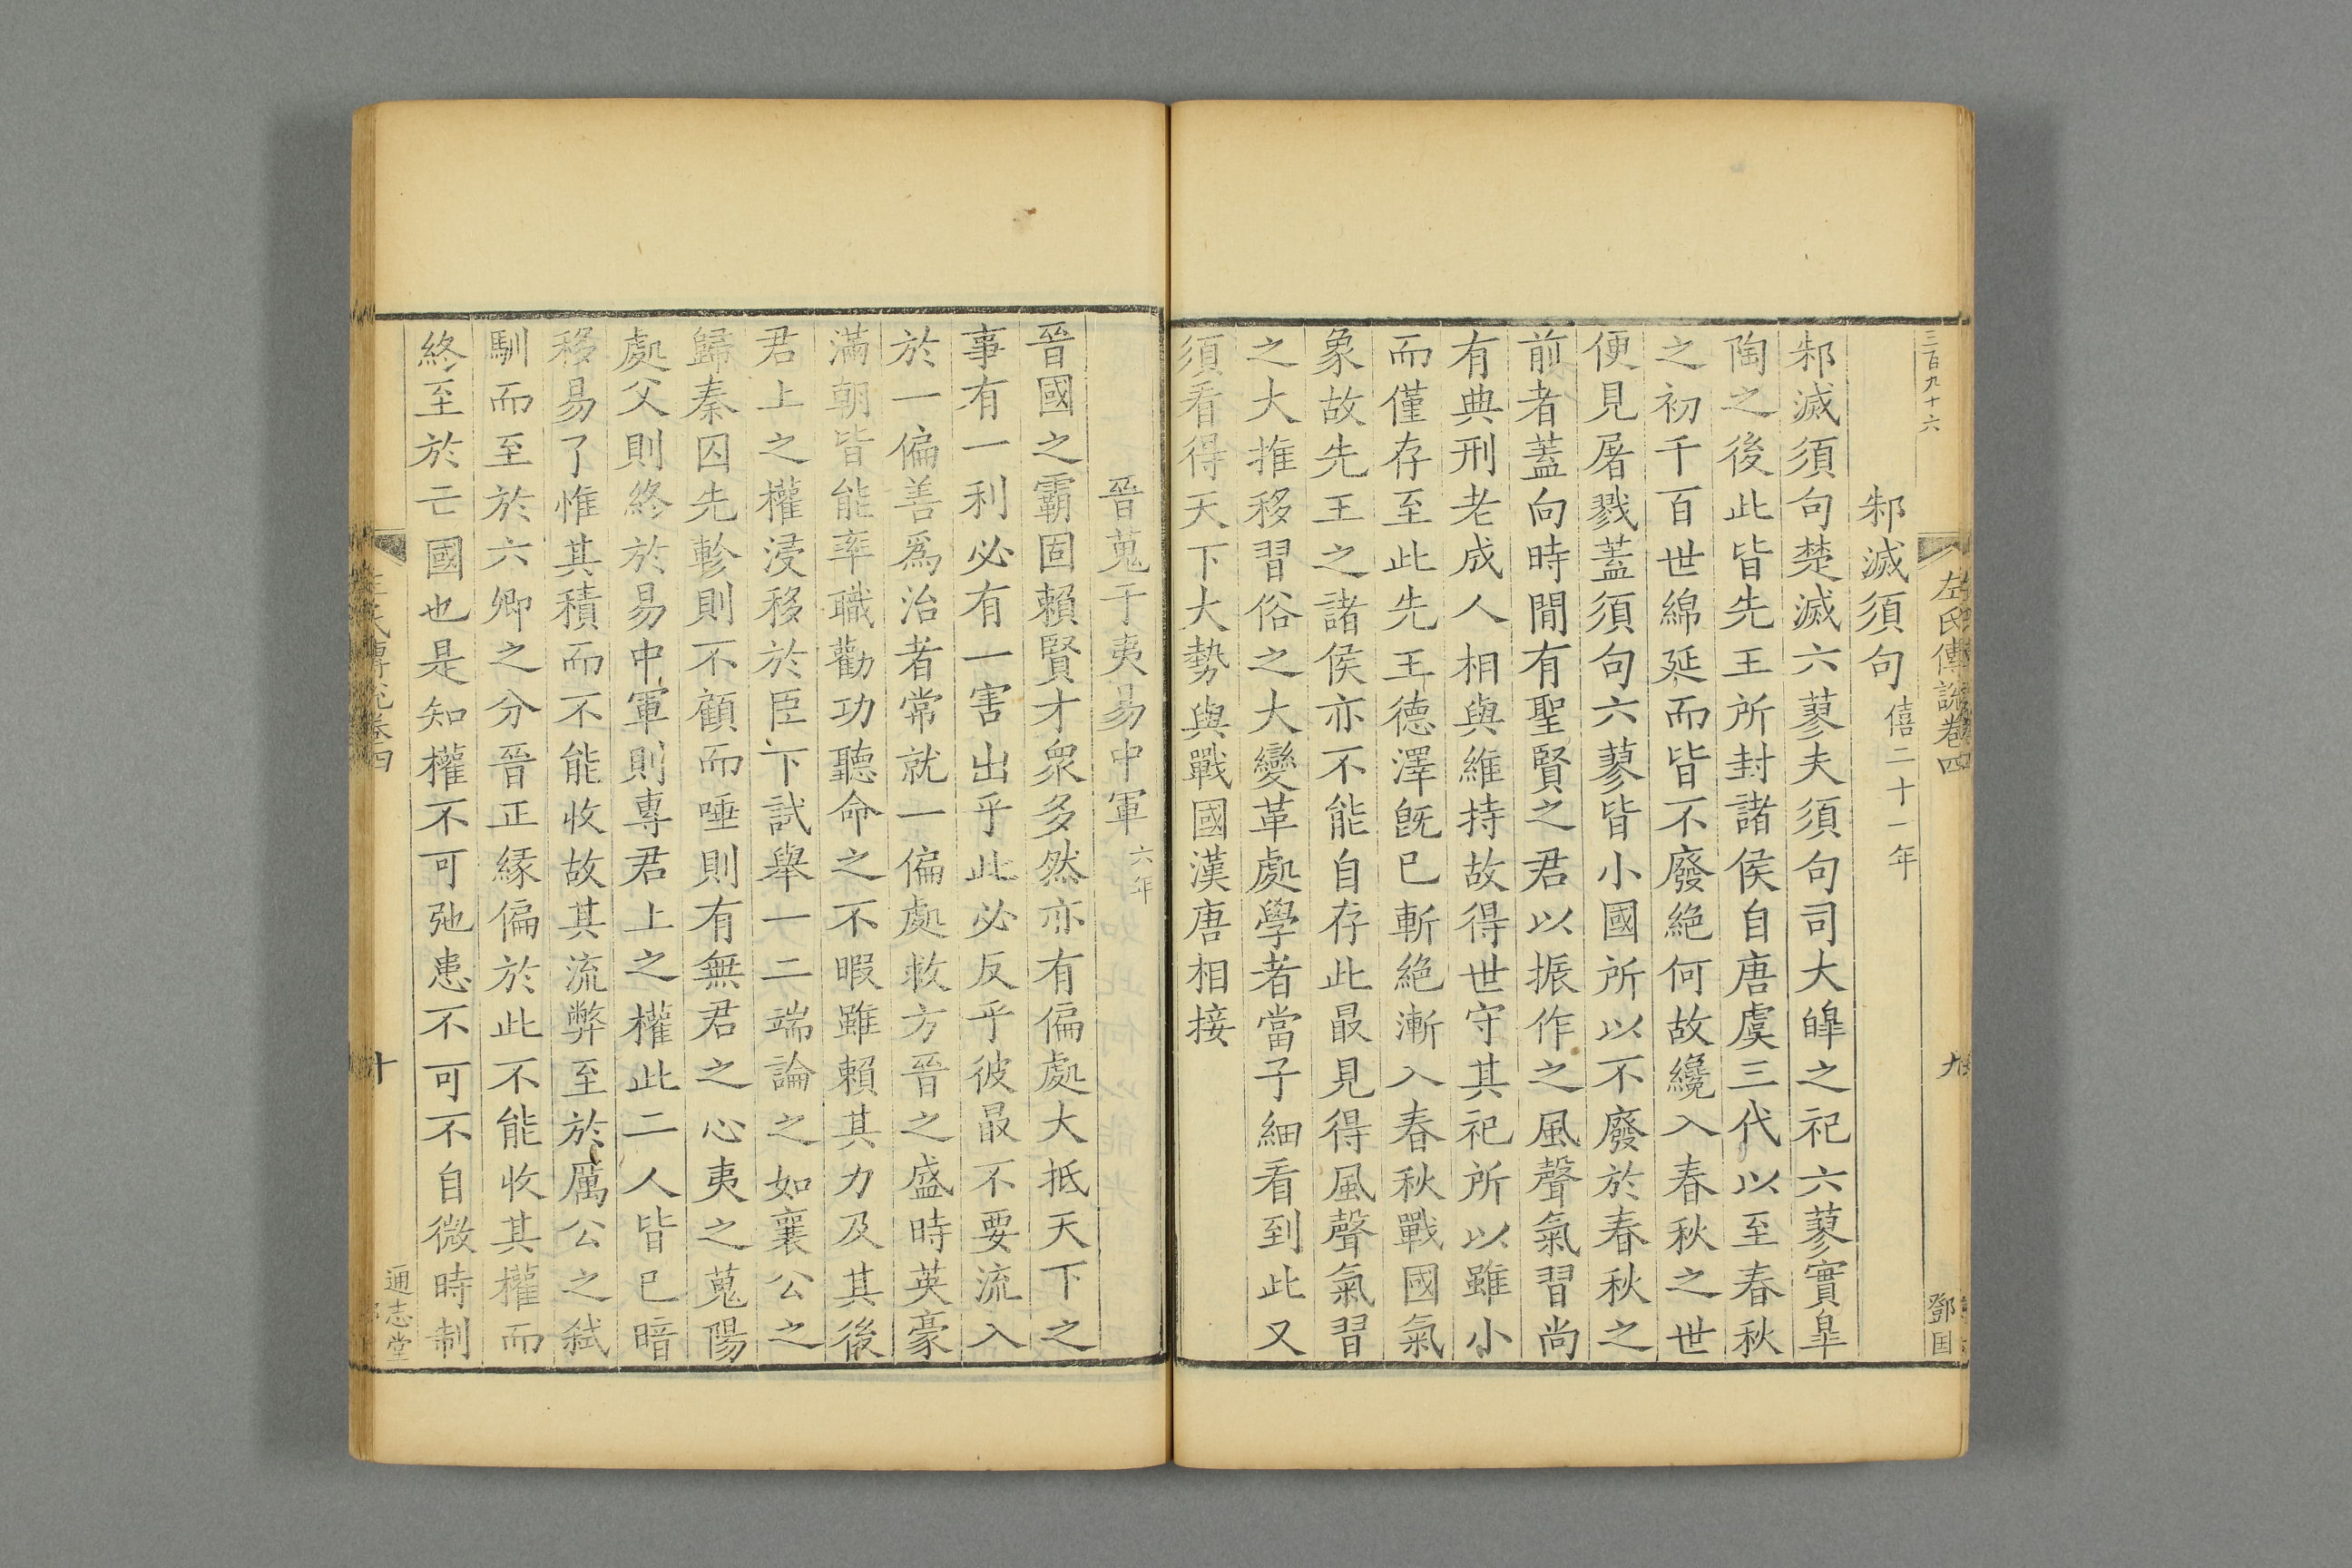 三百九十六
左氏傳說卷四
九
鄧国
邾滅須句 僖二十一年
邾滅須句楚滅六蓼夫須句司大皥之祀六蓼實臯
陶之後此皆先王所封諸侯自唐虞三代以至春秋
之初千百世綿延而皆不廢絶何故纔入春秋之世
便見屠戮蓋須句六蓼皆小國所以不廢於春秋之
前者蓋向時間有聖賢之君以振作之風聲氣習尚
有典刑老成人相與維持故得世守其祀所以雖小
而僅存至此先王德澤旣已斬絶漸入春秋戰國氣
象故先王之諸侯亦不能自存此最見得風聲氣習
之大推移習俗之大變革處學者當子細看到此又
須看得天下大勢與戰國漢唐相接
晉蒐于夷易中軍 六年
晉國之霸固賴賢才衆多然亦有偏處大抵天下之
事有一利必有一害出乎此必反乎彼最不要流入
於一偏善爲治者常就一偏處救方晉之盛時英豪
滿朝皆能率職勸功聽命之不暇雖賴其力及其後
君上之權浸移於臣下試舉一二端論之如襄公之
歸秦囚先軫則不顧而唾則有無君之心夷之蒐陽
處父則終於易中軍則專君上之權此二人皆已暗
移易了惟其積而不能收故其流弊至於厲公之弑
馴而至於六卿之分晉正緣偏於此不能收其權而
終至於亡國也是知權不可弛患不可不自微時制
左氏傳說卷四
十
通志堂